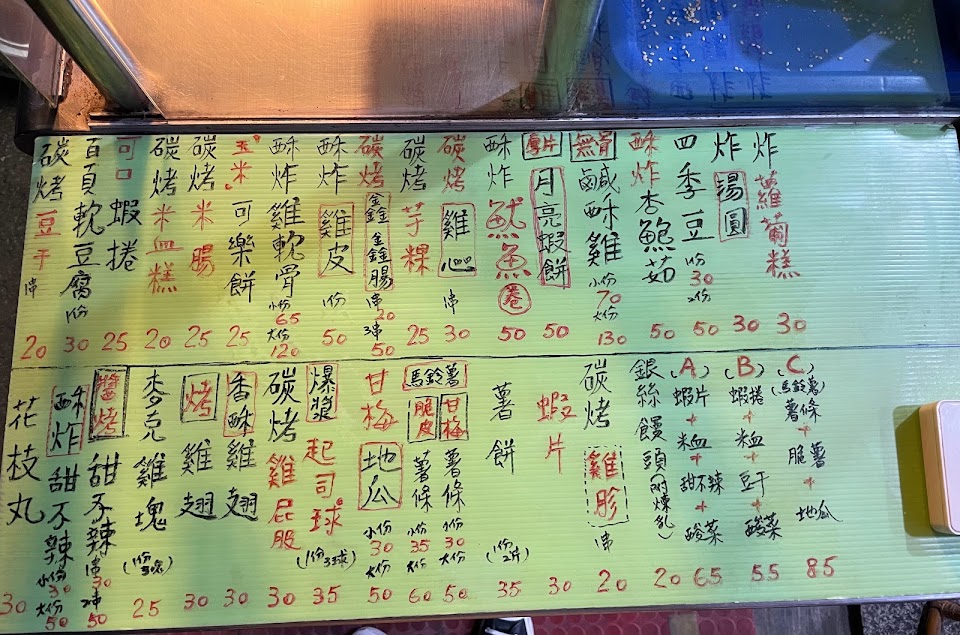 碳烤豆干 串 20
百頁軟豆腐 1份 30
可口蝦捲 25
碳烤米血糕 20
碳烤米腸 25
玉米可樂餅 25
酥炸雞軟骨 小份 65 大份 120
酥炸雞皮 1份 50
碳烤鑫鑫腸 串 20 3串 50
碳烤芋粿 25
碳烤雞心 串 30
酥炸魷魚卷 50
厚片月亮蝦餅 50
無骨鹹酥雞 小份 70 大份 130
酥炸杏鮑菇 50
四季豆 1份 30 2份 50
炸湯圓 30
炸蘿蔔糕 30
花枝丸 30
酥炸甜不辣 小份 30 大份 50
醬烤甜不辣 串 30 2串 50
麥克雞塊 (1份3塊) 25
烤雞翅 30
香酥雞翅 30
碳烤雞屁股 30
爆漿起司球 (1份3球) 35
甘梅地瓜 小份 30 大份 50
馬鈴薯
脆皮薯條 小份 35 大份 60
甘梅薯條 小份 30 大份 50
薯餅 (1份2片) 35
蝦片 30
碳烤雞胗 串 20
銀絲饅頭(附煉乳) 20
(A) 蝦片+米血+甜不辣+酸菜 65
(B) 蝦捲+米血+豆干+酸菜 55
(C) (馬鈴薯)薯條+脆薯+地瓜 85